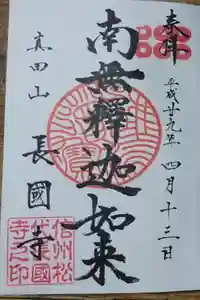 奉拝
平成廿九年
四月十三日
南無釋迦如来
真田山
長國寺
信州松
代長國
寺之印